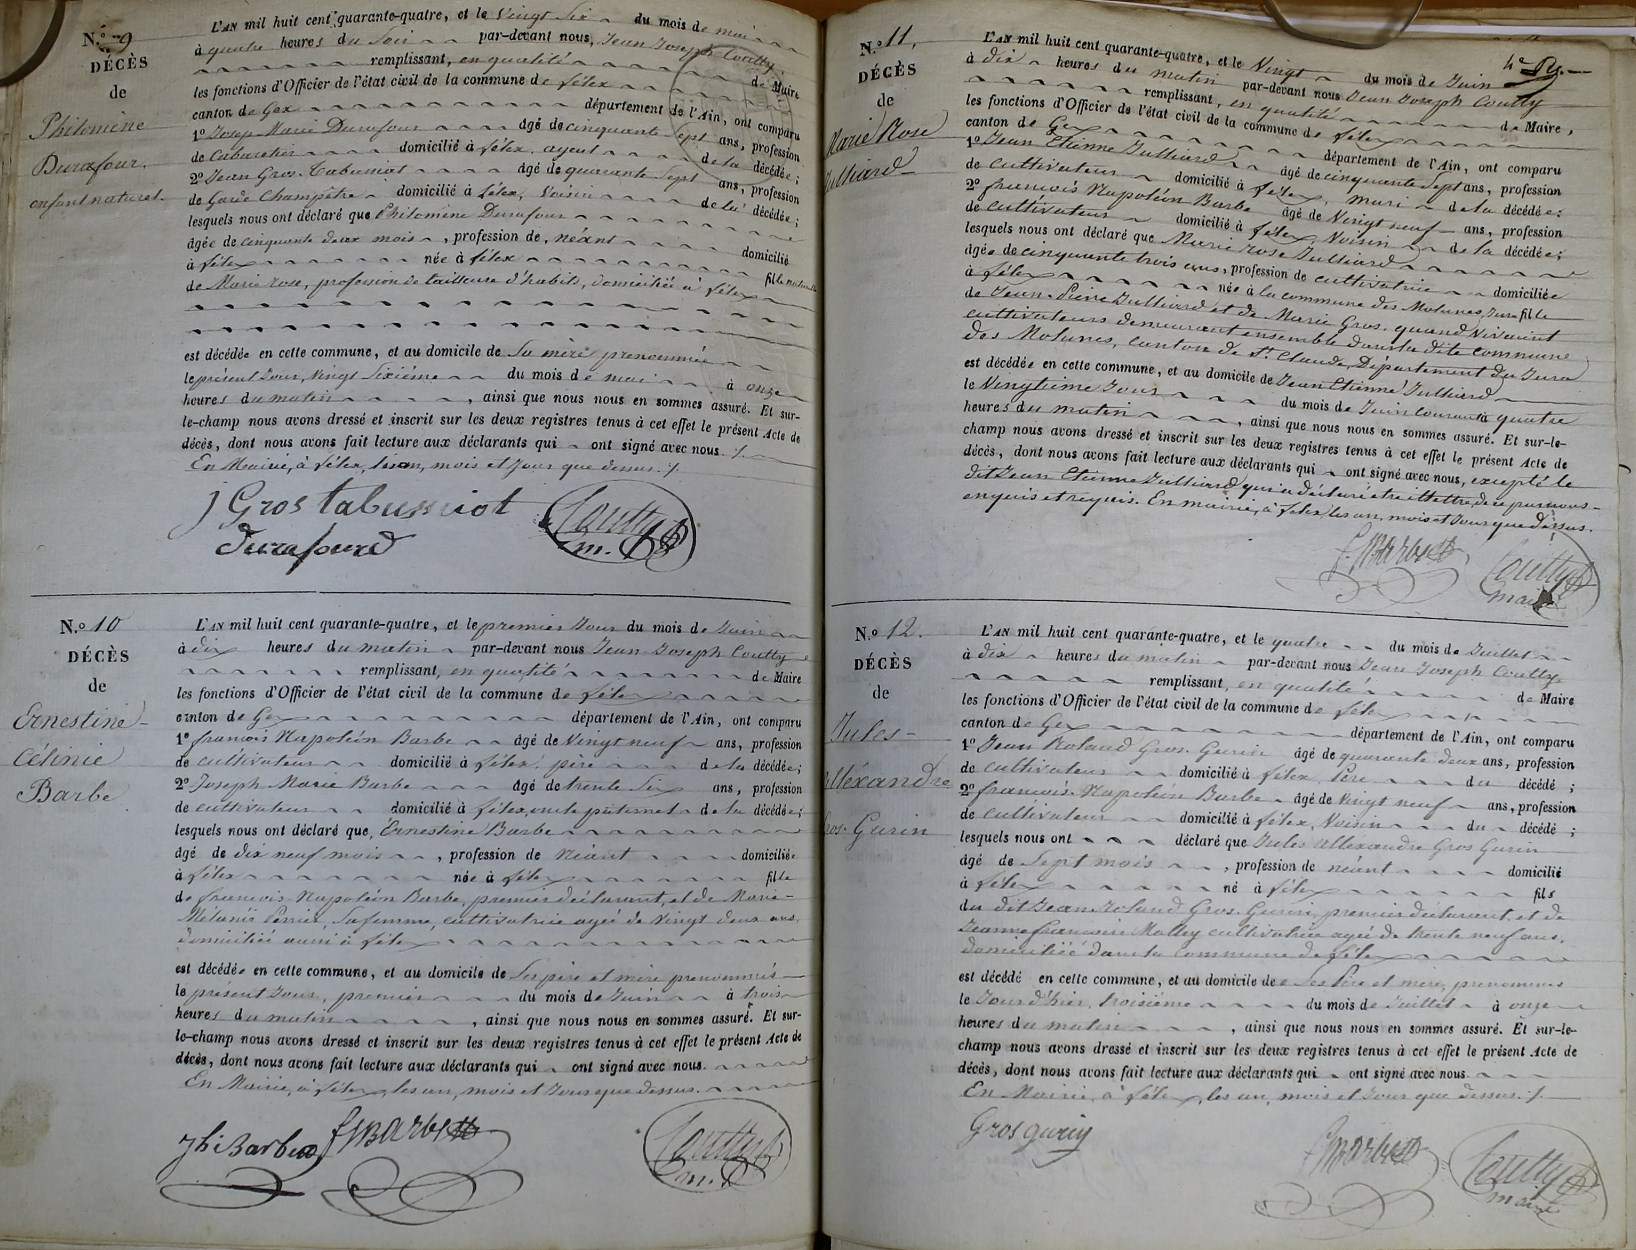 N.º 9
DÉCÈS
de
Philomène
Durafour.
enfant naturel.
L'AN mil huit cent quarante-quatre, et le Vingt Six du mois de mai
à quatre heures du Soir par-devant nous, Jean Joseph Coutty
remplissant, en qualité de Maire
les fonctions d'Officier de l'état civil de la commune de félex
canton de Gex département de l'Ain, ont comparu
1º Josep Marie Durafour âgé de cinquante Sept ans, profession
de Cabaretier domicilié à félex, ayeul de la décédée;
2º Jean Gros Tabussiot âgé de quarante Sept ans, profession
de Garde Champêtre domicilié à félex, Voisin de la décédée;
lesquels nous ont déclaré que Philomène Durafour
âgée de cinquante deux mois, profession de, néant domicilié
à félex née à félex fille naturelle
de Marie rose, profession de tailleuse d'habits, domiciliée à félex
est décédée en cette commune, et au domicile de Sa mère prenommée
le présent Jour, Vingt Sixième du mois de mai à onze
heures du matin, ainsi que nous nous en sommes assuré. Et sur-
le-champ nous avons dressé et inscrit sur les deux registres tenus à cet effet le présent Acte de
décès, dont nous avons fait lecture aux déclarants qui ont signé avec nous ./.
En Mairie, à félex, les an, mois et Jour que dessus ./.
J Gros tabussiot Coutty
Durafourd m.
N.º 10
DÉCÈS
de
Ernestine
Célinie
Barbe
L'AN mil huit cent quarante-quatre, et le premier Jour du mois de Juin
à dix heures du matin par-devant nous Jean Joseph Coutty
remplissant, en qualité de Maire
les fonctions d'Officier de l'état civil de la commune de félex
canton de Gex département de l'Ain, ont comparu
1º françois Napoléon Barbe âgé de Vingt neuf ans, profession
de cultivateur domicilié à félex, père de la décédée;
2º Joseph Marie Barbe âgé de trente Six ans, profession
de cultivateur domicilié à félex, oncle paternel de la décédée;
lesquels nous ont déclaré que, Ernestine Barbe
âgé de dix neuf mois, profession de Néant domiciliée
à félex née à félex fille
de françois Napoléon Barbe, premier déclarant, et de Marie-
Mélanie Perrier, Sa femme, cultivatrice agée de Vingt deux ans,
domiciliée aussi à félex
est décédée en cette commune, et au domicile de Ses père et mère prenommés
le présent Jour, premier du mois de Juin à trois
heures du matin, ainsi que nous nous en sommes assuré. Et sur-
le-champ nous avons dressé et inscrit sur les deux registres tenus à cet effet le présent Acte de
décès, dont nous avons fait lecture aux déclarants qui ont signé avec nous.
En Mairie, à félex, les an, mois et Jour que dessus.
Jh Barbe f N Barbe Coutty
m.
4e
N.º 11,
DÉCÈS
de
Marie Rose
Julliard
L'AN mil huit cent quarante-quatre, et le Vingt du mois de Juin
à dix heures du matin par-devant nous Jean Joseph Coutty
remplissant, en qualité de Maire,
les fonctions d'Officier de l'état civil de la commune de félex
canton de Gex département de l'Ain, ont comparu
1º Jean Etienne Julliard âgé de cinquante Sept ans, profession
de cultivateur domicilié à félex, mari de la décédée:
2º françois Napoléon Barbe âgé de Vingt neuf ans, profession
de cultivateur domicilié à félex, Voisin de la décédée;
lesquels nous ont déclaré que Marie rose Julliard
âgée de cinquante trois ans, profession de cultivatrice domiciliée
à félex née à la commune des Molunes, Jura fille
de Jean-Pierre Julliard et de Marie Gros, quand Vivaient
cultivateurs demeurant ensemble dans la dite commune
des Molunes, canton de St. Claude, Département du Jura
est décédée en cette commune, et au domicile de Jean Etienne Julliard
le Vingtième Jour du mois de Juin courant à quatre
heures du matin, ainsi que nous nous en sommes assuré. Et sur-le-
champ nous avons dressé et inscrit sur les deux registres tenus à cet effet le présent Acte de
décès, dont nous avons fait lecture aux déclarants qui ont signé avec nous, excepté le
dit Jean Etienne Julliard qui a déclaré etre illettré, de ce par nous
enquis et requis. En mairie, à félex, les an, mois et Jour que dessus.
f. N Barbe Coutty
maire
N.º 12.
DÉCÈS
de
Jules-
Alléxandre
Gros-Gurin
L'AN mil huit cent quarante-quatre, et le quatre du mois de Juillet
à dix heures du matin par-devant nous Jean Joseph Coutty
remplissant, en qualité de Maire
les fonctions d'Officier de l'état civil de la commune de félex
canton de Gex département de l'Ain, ont comparu
1º Jean Roland Gros-Gurin âgé de quarante deux ans, profession
de cultivateur domicilié à félex, Père du décédé ;
2º françois Napoléon Barbe âgé de Vingt neuf ans, profession
de cultivateur domicilié à félex, Voisin du décédé ;
lesquels nous ont déclaré que Jules Allexandre Gros Gurin
âgé de Sept mois, profession de néant domicilié
à félex né à félex fils
du dit Jean-roland Gros-Gurin, premier déclarant, et de
Jeanne françoise Mathey cultivatrice agée de trente neuf ans,
domiciliée dans la Commune de félex
est décédé en cette commune, et au domicile de Ses Père et mère, prenommés
le Jour d'hier, troisième du mois de Juillet à onze
heures du matin, ainsi que nous nous en sommes assuré. Et sur-le-
champ nous avons dressé et inscrit sur les deux registres tenus à cet effet le présent Acte de
décès, dont nous avons fait lecture aux déclarants qui ont signé avec nous
En Mairie, à félex, les an, mois et Jour que dessus ./.
Gros gurin f N Barbe Coutty
maire